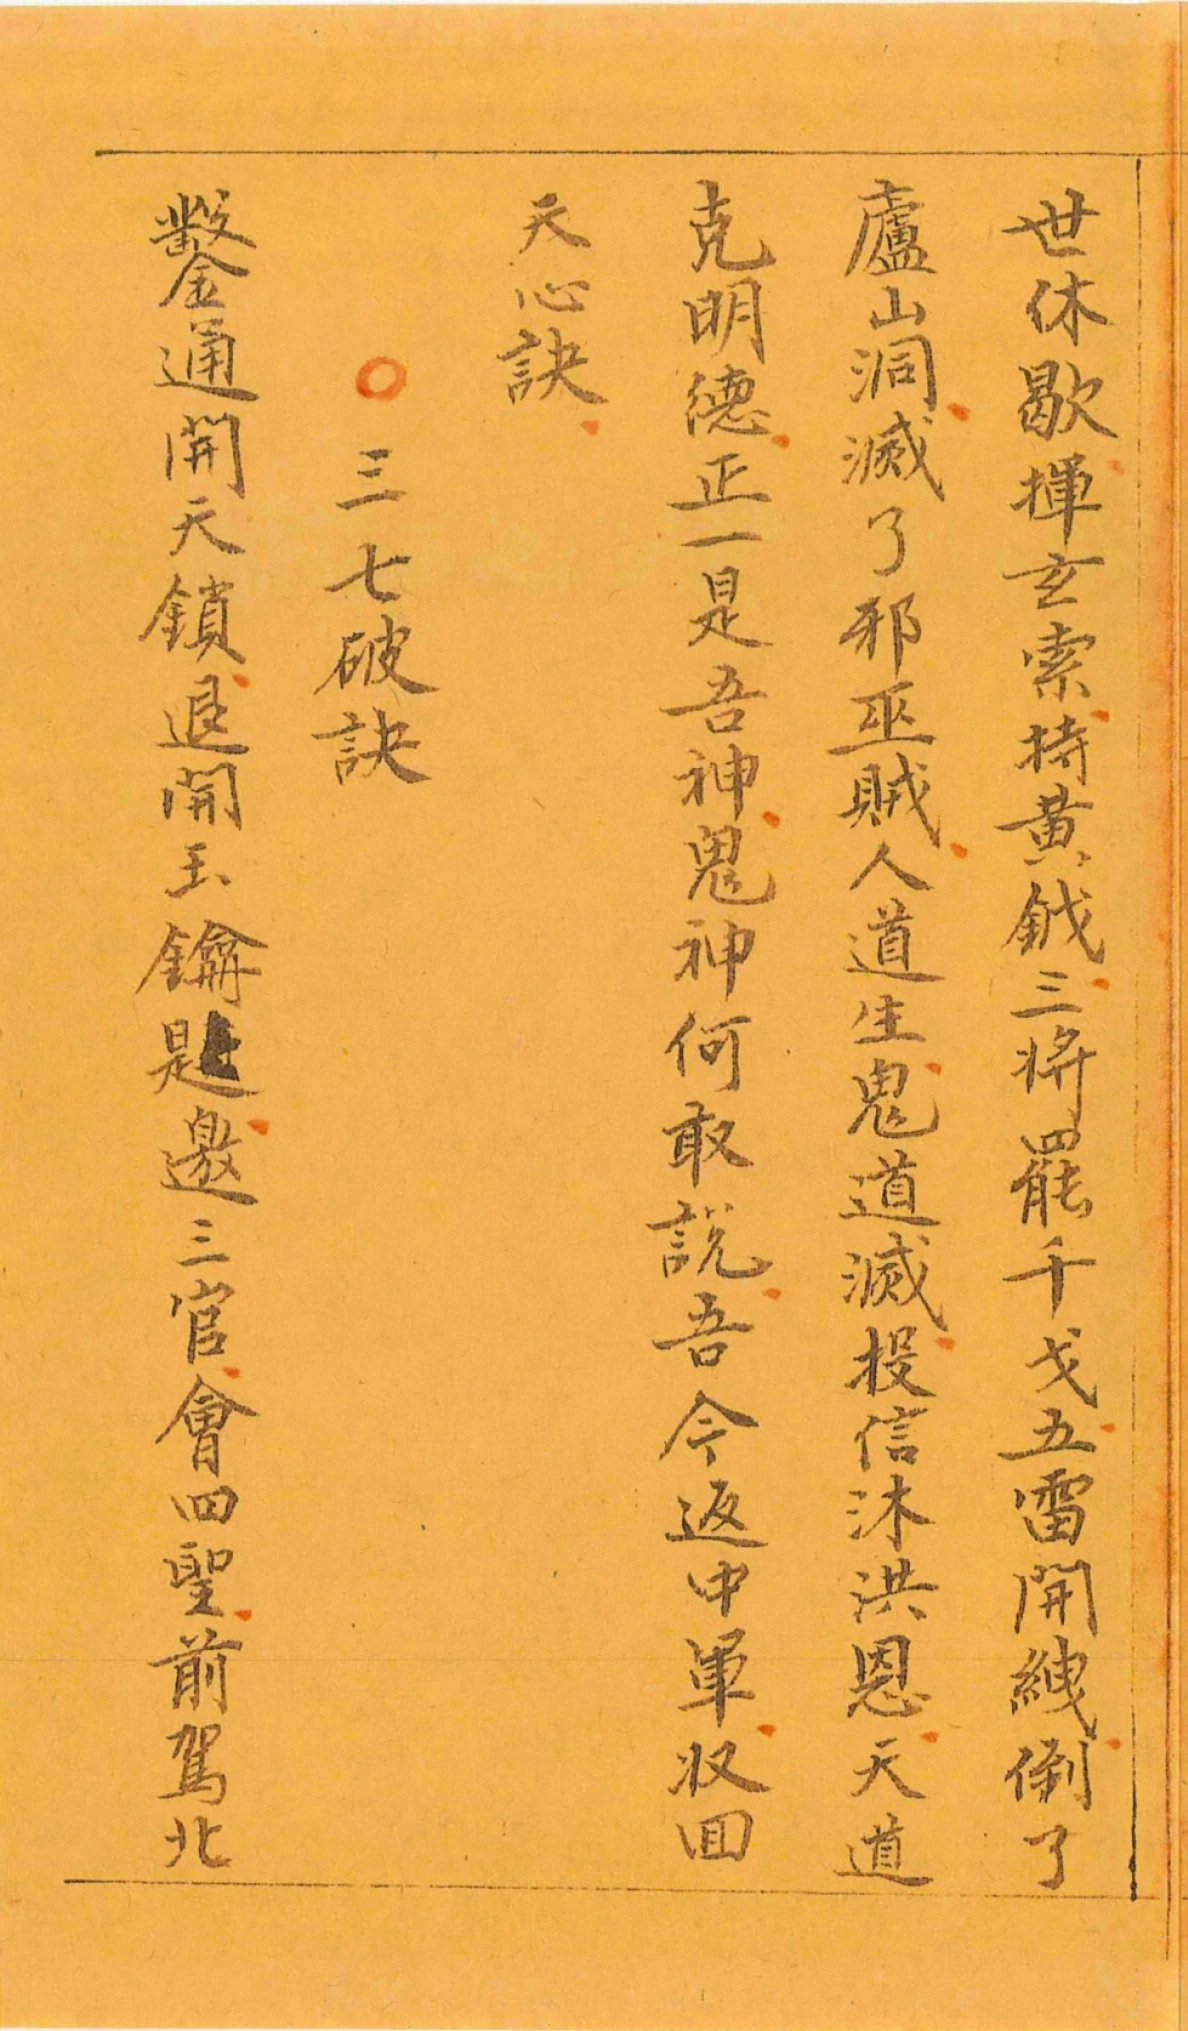 世休歇揮玄索持黃鉞三將罷千戈五雷開綫倒了
廬山洞滅了邪巫賊人道生鬼道滅投信沐洪恩天道
克明德正一是吾神鬼神何敢説吾今返中軍收回
天心訣
三七破訣
鑿通開天鎖退開玉鑰匙邀三官會四聖前駕北